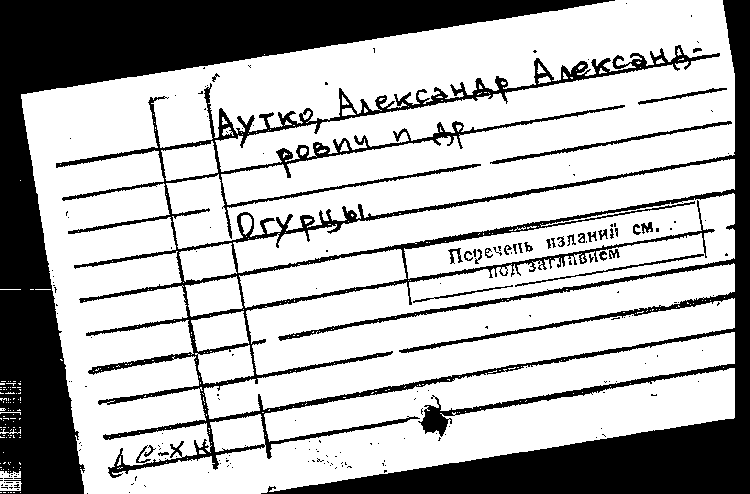 Аутко, Александр Александ-
рович и др.
Огурцы.
Перечень изданий см.
под заглавием
с-х н